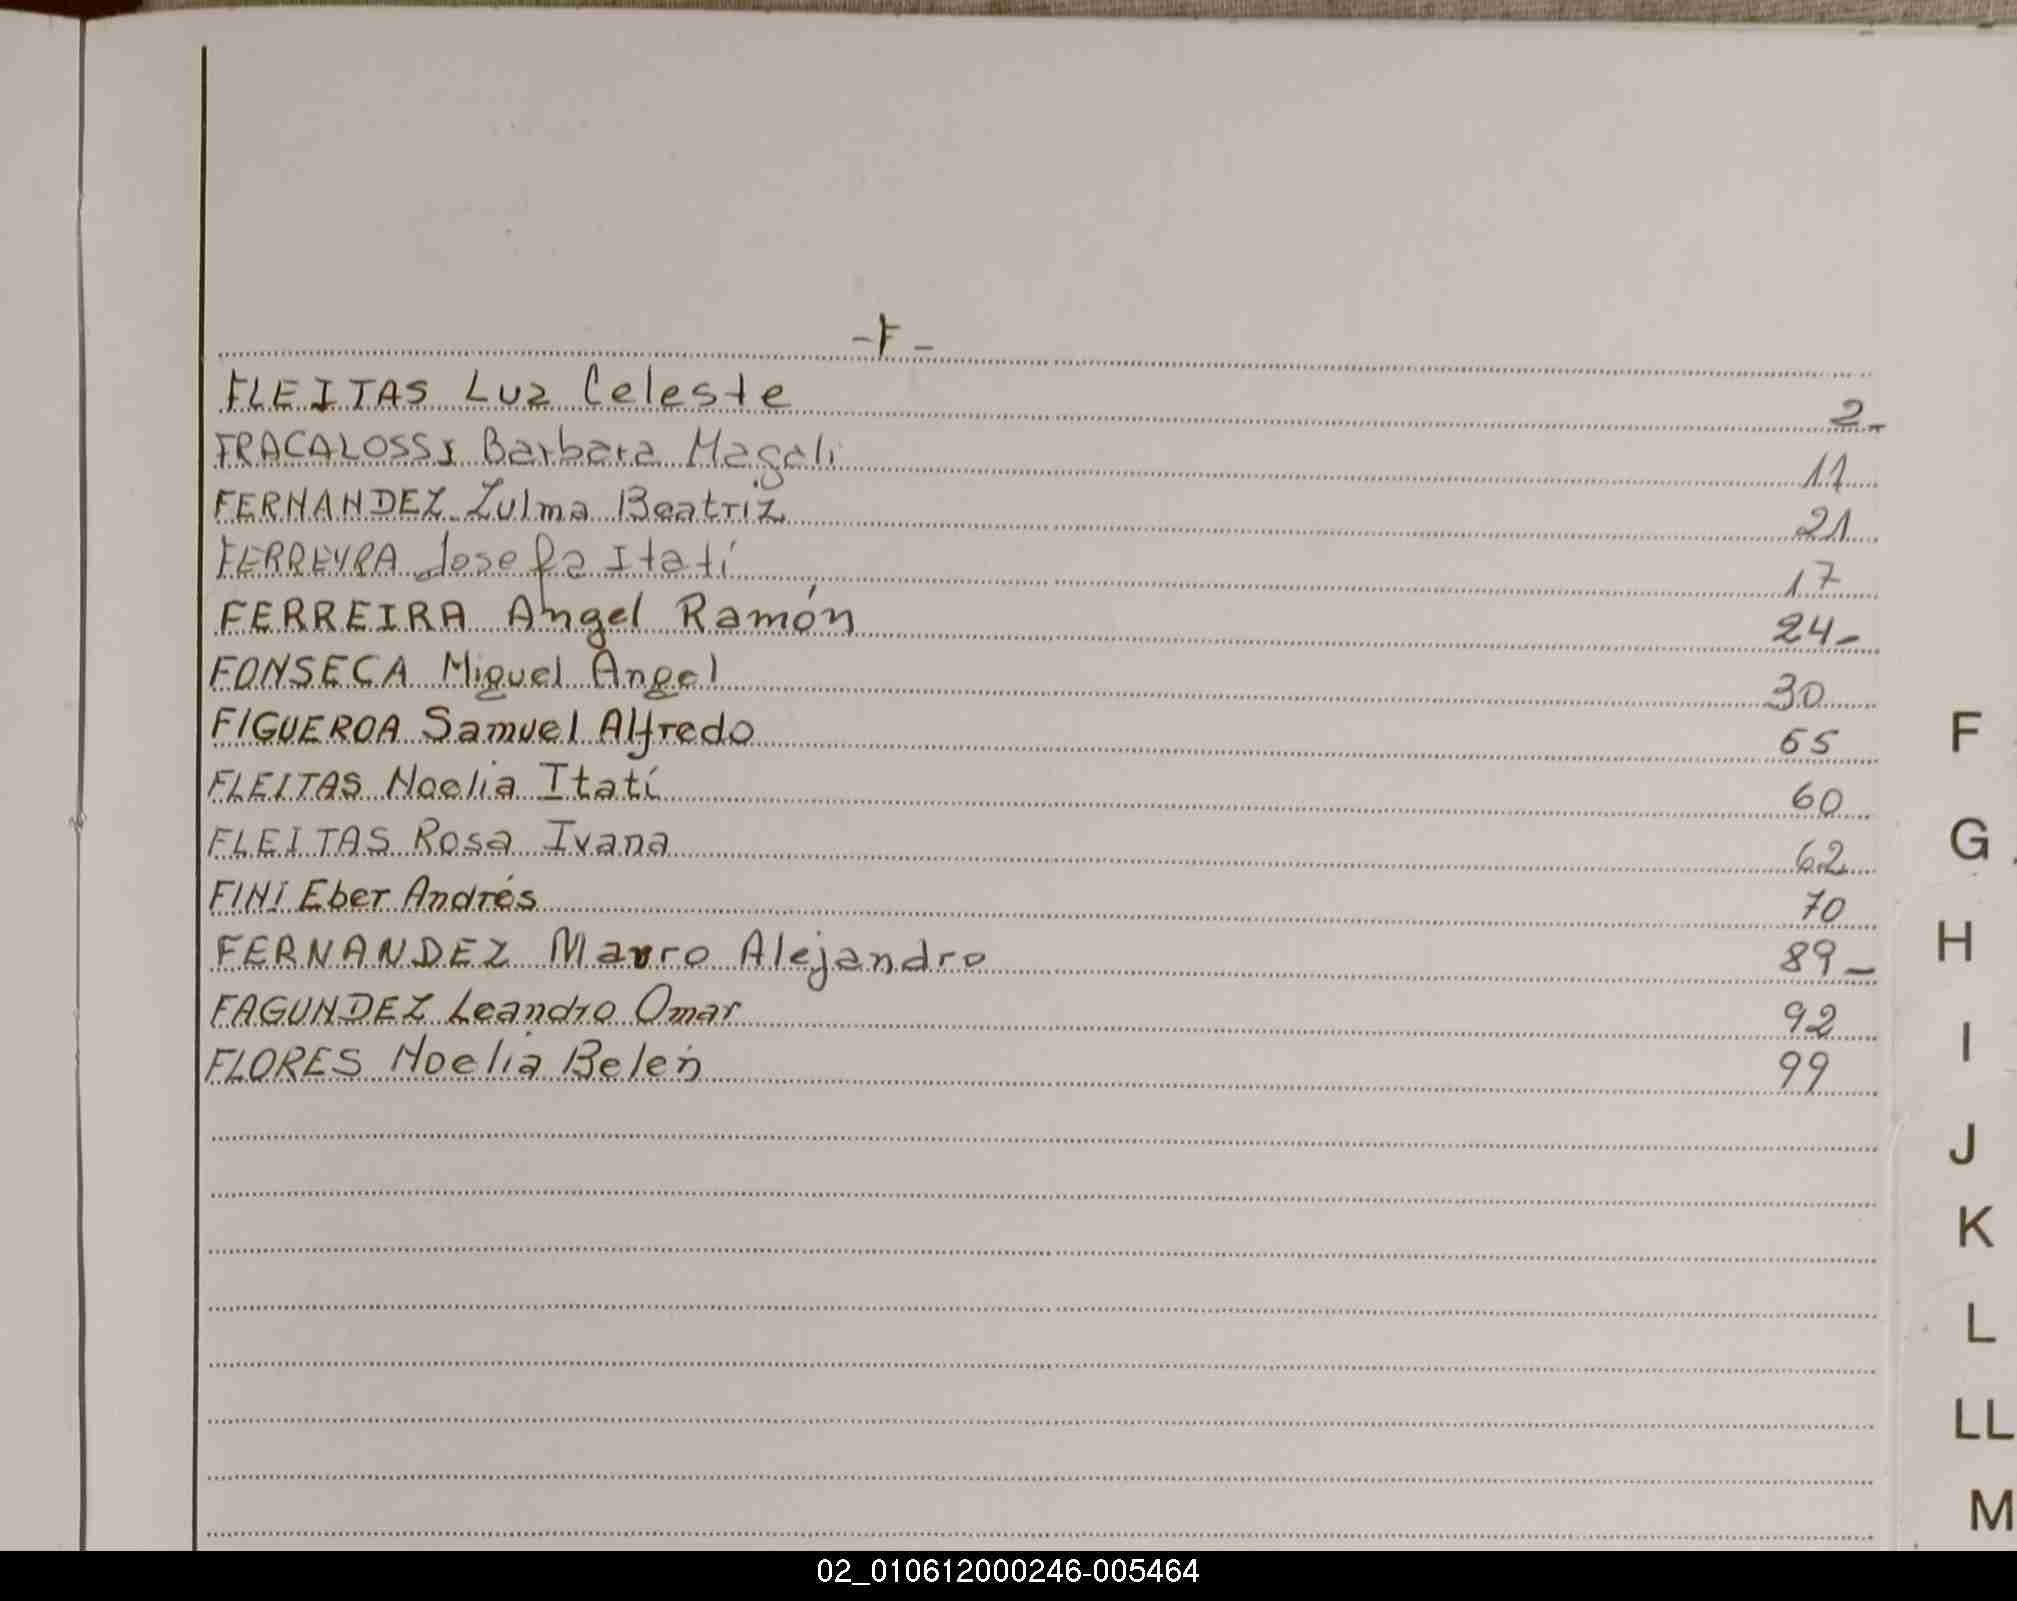 -F-
FLEITAS Luz Celeste 2-
FRACALOSSI Barbara Magali 11
FERNANDEZ Zulma Beatriz 21
FERREYRA Josefa Itatí 17
FERREIRA Angel Ramón 24-
FONSECA Miguel Angel 30
FIGUEROA Samuel Alfredo 65
FLEITAS Noelia Itatí 60
FLEITAS Rosa Ivana 62
FINI Eber Andrés 70
FERNANDEZ Mauro Alejandro 89-
FAGUNDEZ Leandro Omar 92
FLORES Noelia Belén 99
F
G
H
I
J
K
L
LL
M
02_010612000246-005464